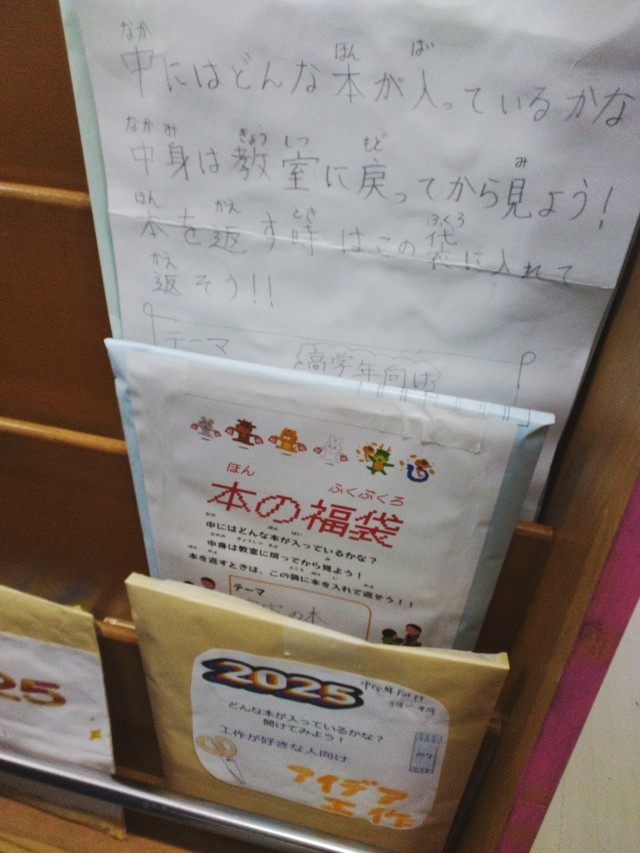 中にはどんな本が入っているかな
中身は教室に戻ってから見よう!
本を返す時はこの袋に入れて
返そう!!
テーマ
高学年向け
本の福袋
中にはどんな本が入っているかな?
中身は教室に戻ってから見よう!
本を返すときは、この袋に本を入れて返そう!!
テーマ
の本
2025
どんな本が入っているかな?
開けてみよう!
工作が好きな人向け
のり
アイデア
工作
25